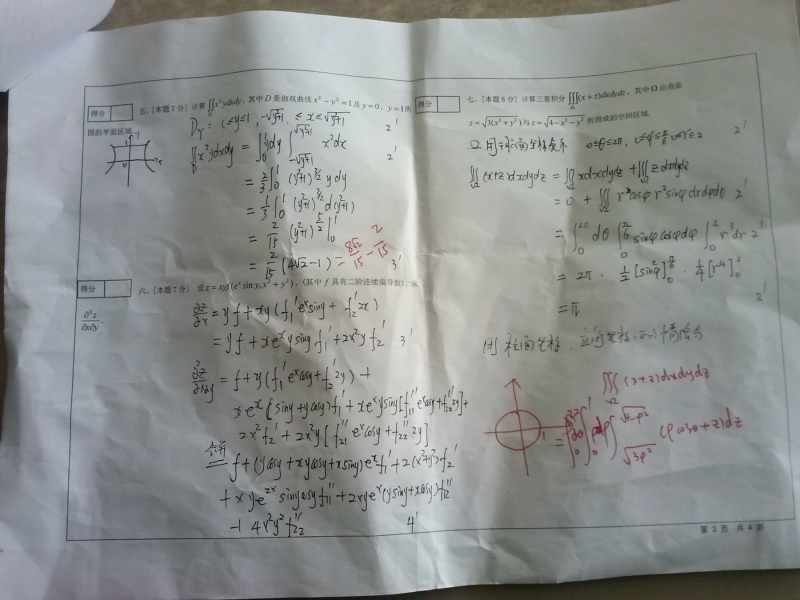 得分
五、[本题7分] 计算∬x²ydxdy, 其中D是由双曲线x²-y²=1及y=0, y=1所
围的平面区域.
∬x²ydxdy = ∫₀¹ydy∫ x²dx 2'
= 2/3 ∫₀¹ (y²+1)^{3/2} y dy
= 1/3 ∫₀¹ (y²+1)^{3/2} d(y²+1)
= 2/15 (y²+1)^{5/2} |₀¹
= 2/15 (4√2-1) = 8√2/15 - 2/15 3'
得分
六、[本题7分] 设z=xyf(eˣsin y, x²+y²), (其中f具有二阶连续偏导数), 求
∂²z/∂x∂y.
∂z/∂x = yf+xy(f₁'eˣsiny+f₂'2x)
= yf+xeˣysinyf₁'+2x²yf₂' 3'
∂²z/∂x∂y = f+y(f₁'eˣcosy+f₂'2y)+
xeˣ[siny+ycosy]f₁'+xeˣysiny[f₁₁''eˣcosy+f₁₂''2y]+
2x²f₂'+2x²y[f₂₁''eˣcosy+f₂₂''2y]
= f+(ycosy+xycosy+xsiny)eˣf₁'+2(x²+y²)f₂'
+xye²ˣsinycosyf₁₁''+2xyeˣ(ysiny+xcosy)f₁₂''
+4x²y²f₂₂'' 4'
得分
七、[本题8分] 计算三重积分∭(x+z)dxdydz, 其中Ω由曲面
z=√3(x²+y²)与z=√4-x²-y²所围成的空间区域.
0≤θ≤2π, 0≤φ≤π/6, 0≤r≤2 2'
∭(x+z)dxdydz = ∭xdxdydz+∭zdxdydz
= 0+∭rcosφr²sinφdrdφdθ 2'
= ∫₀^{2π}dθ∫₀^{π/6}sinφcosφdφ∫₀²r³dr 2'
= 2π·1/2[sin²φ]₀^{π/6}·1/4[r⁴]₀²
= π 2'
∭(x+z)dxdydz
= ∫₀^{2π}dθ∫₀¹ρdρ∫ (ρcosθ+z)dz
第 3 页 共 4 页